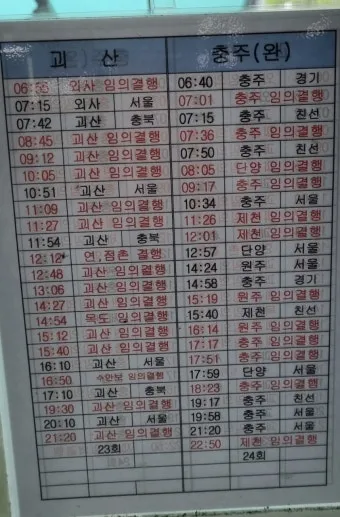 괴 산 충주(완)
06:55 외사 임의결행 06:40 충주 경기
07:15 외사 서울 07:01 충주 임의결행
07:42 괴산 충북 07:15 충주 친선
08:45 괴산 임의결행 07:36 충주 임의결행
09:12 괴산 임의결행 07:50 충주 친선
10:05 괴산 임의결행 08:05 단양 임의결행
10:51 괴산 서울 09:17 충주 임의결행
11:09 괴산 임의결행 10:34 충주 서울
11:27 괴산 임의결행 11:26 제천 임의결행
11:54 괴산 충북 12:01 제천 임의결행
12:12 연,점촌 결행 12:57 단양 서울
12:48 괴산 임의결행 14:24 원주 서울
13:06 괴산 임의결행 14:58 충주 경기
14:27 괴산 임의결행 15:19 원주 임의결행
14:54 목도 임의결행 15:40 제천 친선
15:12 괴산 임의결행 16:14 원주 임의결행
15:40 괴산 임의결행 17:17 충주 임의결행
16:10 괴산 서울 17:51 충주 임의결행
16:50 수안보 임의결행 17:59 단양 서울
17:10 괴산 충북 18:23 충주 임의결행
19:30 괴산 임의결행 19:17 충주 친선
20:10 괴산 서울 19:58 충주 서울
21:20 괴산 임의결행 21:20 충주 서울
23회 22:50 제천 임의결행
24회